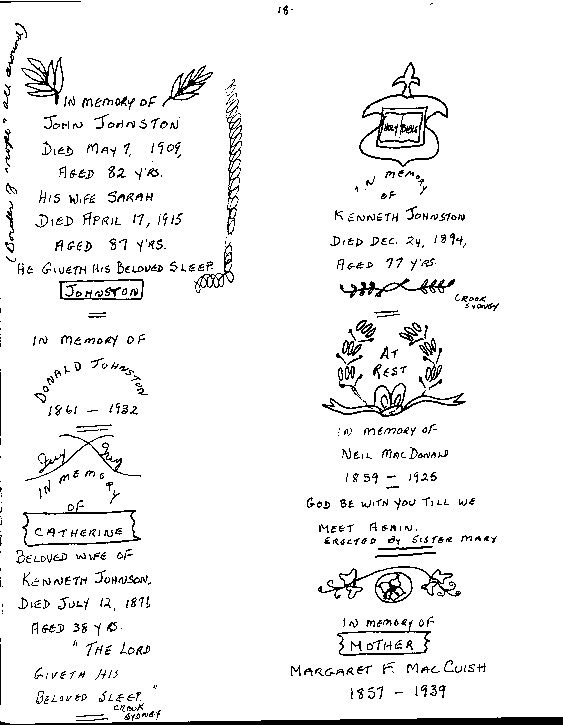 18-
(Border of "rope" all around)
IN MEMORY OF
JOHN JOHNSTON
DIED MAY 7, 1909,
AGED 82 YRS.
HIS WIFE SARAH
DIED APRIL 17, 1915
AGED 87 YRS.
HE GIVETH HIS BELOVED SLEEP
JOHNSTON
IN MEMORY OF
DONALD JOHNSTON
1861 - 1932
Ivy Ivy
IN MEMORY
OF
CATHERINE
BELOVED WIFE OF
KENNETH JOHNSON,
DIED JULY 12, 1871
AGED 38 YRS.
"THE LORD
GIVETH HIS
BELOVED SLEEP"
CROOK
SYDNEY
HOLY BIBLE
IN MEMORY
OF
KENNETH JOHNSTON
DIED DEC. 24, 1894,
AGED 77 YRS.
CROOK
SYDNEY
AT
REST
IN MEMORY OF
NEIL MACDONALD
1859 - 1925
GOD BE WITH YOU TILL WE
MEET AGAIN.
ERECTED BY SISTER MARY
IN MEMORY OF
MOTHER
MARGARET F. MACCUISH
1857 - 1939